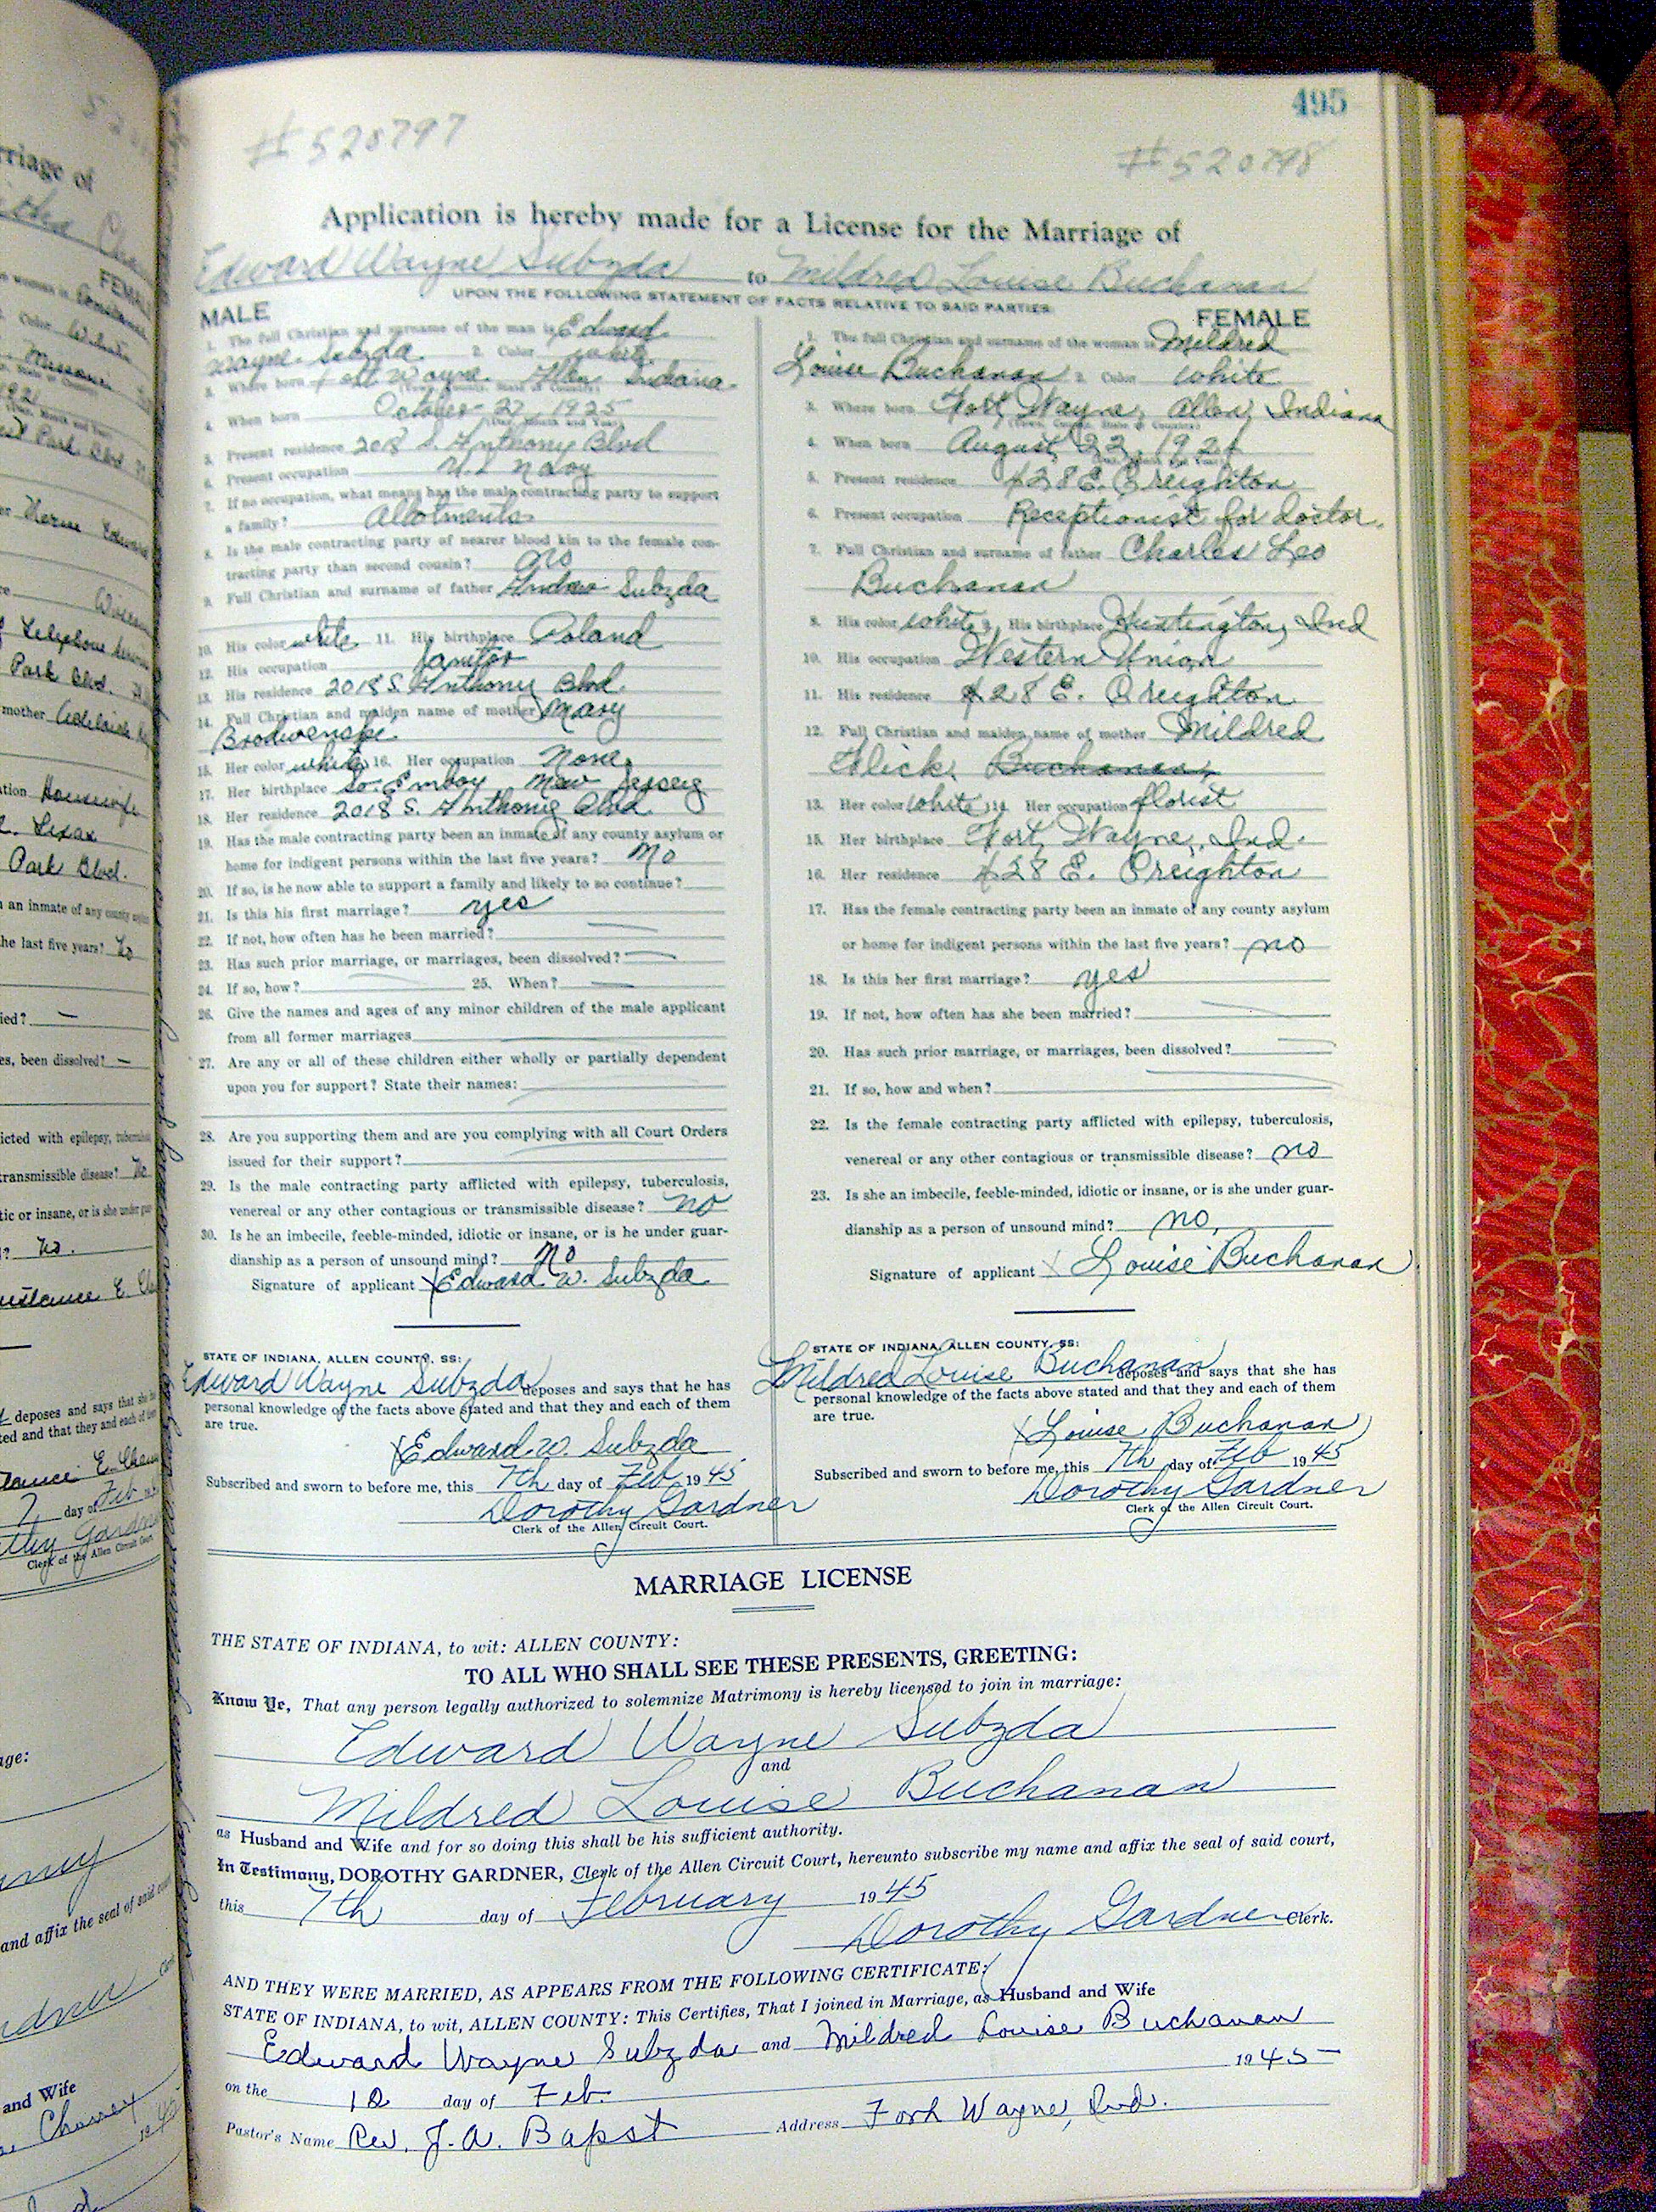 495
#520797
#520798
Application is hereby made for a License for the Marriage of
Edward Wayne Subzda to Mildred Louise Buchanan
UPON THE FOLLOWING STATEMENT OF FACTS RELATIVE TO SAID PARTIES:
MALE
1. The full Christian and surname of the man is Edward
Wayne Subzda 2. Color white
3. Where born Fort Wayne Allen Indiana
(Town, County, State or Country)
4. When born October 27, 1925
(Day, Month and Year)
5. Present residence 2018 S. Anthony Blvd
6. Present occupation U.S. Navy
7. If no occupation, what means has the male contracting party to support
a family? Allotments
8. Is the male contracting party of nearer blood kin to the female con-
tracting party than second cousin? no
9. Full Christian and surname of father Andrew Subzda
10. His color white 11. His birthplace Poland
12. His occupation Janitor
13. His residence 2018 S. Anthony Blvd.
14. Full Christian and maiden name of mother Mary
15. Her color white 16. Her occupation None
17. Her birthplace So. Emboy New Jersey
18. Her residence 2018 S. Anthony Blvd
19. Has the male contracting party been an inmate of any county asylum or
home for indigent persons within the last five years? No
20. If so, is he now able to support a family and likely to so continue?
21. Is this his first marriage? yes
22. If not, how often has he been married?
23. Has such prior marriage, or marriages, been dissolved?
24. If so, how? 25. When?
26. Give the names and ages of any minor children of the male applicant
from all former marriages
27. Are any or all of these children either wholly or partially dependent
upon you for support? State their names:
28. Are you supporting them and are you complying with all Court Orders
issued for their support?
29. Is the male contracting party afflicted with epilepsy, tuberculosis,
venereal or any other contagious or transmissible disease? no
30. Is he an imbecile, feeble-minded, idiotic or insane, or is he under guar-
dianship as a person of unsound mind? No
Signature of applicant X Edward W. Subzda
STATE OF INDIANA, ALLEN COUNTY, SS:
Edward Wayne Subzda deposes and says that he has
personal knowledge of the facts above stated and that they and each of them
are true.
X Edward W. Subzda
Subscribed and sworn to before me, this 7th day of Feb 1945
Dorothy Gardner
Clerk of the Allen Circuit Court.
FEMALE
1. The full Christian and surname of the woman is Mildred
Louise Buchanan 2. Color white
3. Where born Fort Wayne, Allen, Indiana
(Town, County, State or Country)
4. When born August 22, 1924
(Day, Month and Year)
5. Present residence 428 E. Creighton
6. Present occupation Receptionist for doctor.
7. Full Christian and surname of father Charles Leo
Buchanan
8. His color white 9. His birthplace Huntington, Ind
10. His occupation Western Union
11. His residence 428 E. Creighton
12. Full Christian and maiden name of mother Mildred
Click Buchanan,
13. Her color white 14. Her occupation florist
15. Her birthplace Fort Wayne, Ind.
16. Her residence 428 E. Creighton
17. Has the female contracting party been an inmate of any county asylum
or home for indigent persons within the last five years? no
18. Is this her first marriage? yes
19. If not, how often has she been married?
20. Has such prior marriage, or marriages, been dissolved?
21. If so, how and when?
22. Is the female contracting party afflicted with epilepsy, tuberculosis,
venereal or any other contagious or transmissible disease? no
23. Is she an imbecile, feeble-minded, idiotic or insane, or is she under guar-
dianship as a person of unsound mind? no,
Signature of applicant X Louise Buchanan
STATE OF INDIANA, ALLEN COUNTY, SS:
Mildred Louise Buchanan deposes and says that she has
personal knowledge of the facts above stated and that they and each of them
are true.
X Louise Buchanan
Subscribed and sworn to before me, this 7th day of Feb 1945
Dorothy Gardner
Clerk of the Allen Circuit Court.
MARRIAGE LICENSE
THE STATE OF INDIANA, to wit: ALLEN COUNTY:
TO ALL WHO SHALL SEE THESE PRESENTS, GREETING:
Know Ye, That any person legally authorized to solemnize Matrimony is hereby licensed to join in marriage:
Edward Wayne Subzda
and
Mildred Louise Buchanan
as Husband and Wife and for so doing this shall be his sufficient authority.
In Testimony, DOROTHY GARDNER, Clerk of the Allen Circuit Court, hereunto subscribe my name and affix the seal of said court,
this 7th day of February 1945
Dorothy Gardner Clerk.
AND THEY WERE MARRIED, AS APPEARS FROM THE FOLLOWING CERTIFICATE:
STATE OF INDIANA, to wit, ALLEN COUNTY: This Certifies, That I joined in Marriage, as Husband and Wife
Edward Wayne Subzda and Mildred Louise Buchanan
on the 10 day of Feb. 1945
Pastor's Name Rev. J. A. Bapst Address Fort Wayne, Ind.